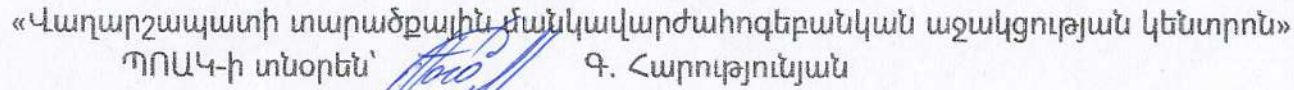 «Վաղարշապատի տարածքային մանկավարժահոգեբանական աջակցության կենտրոն»
ՊՈԱԿ-ի տնօրեն՝ Գ. Հարությունյան